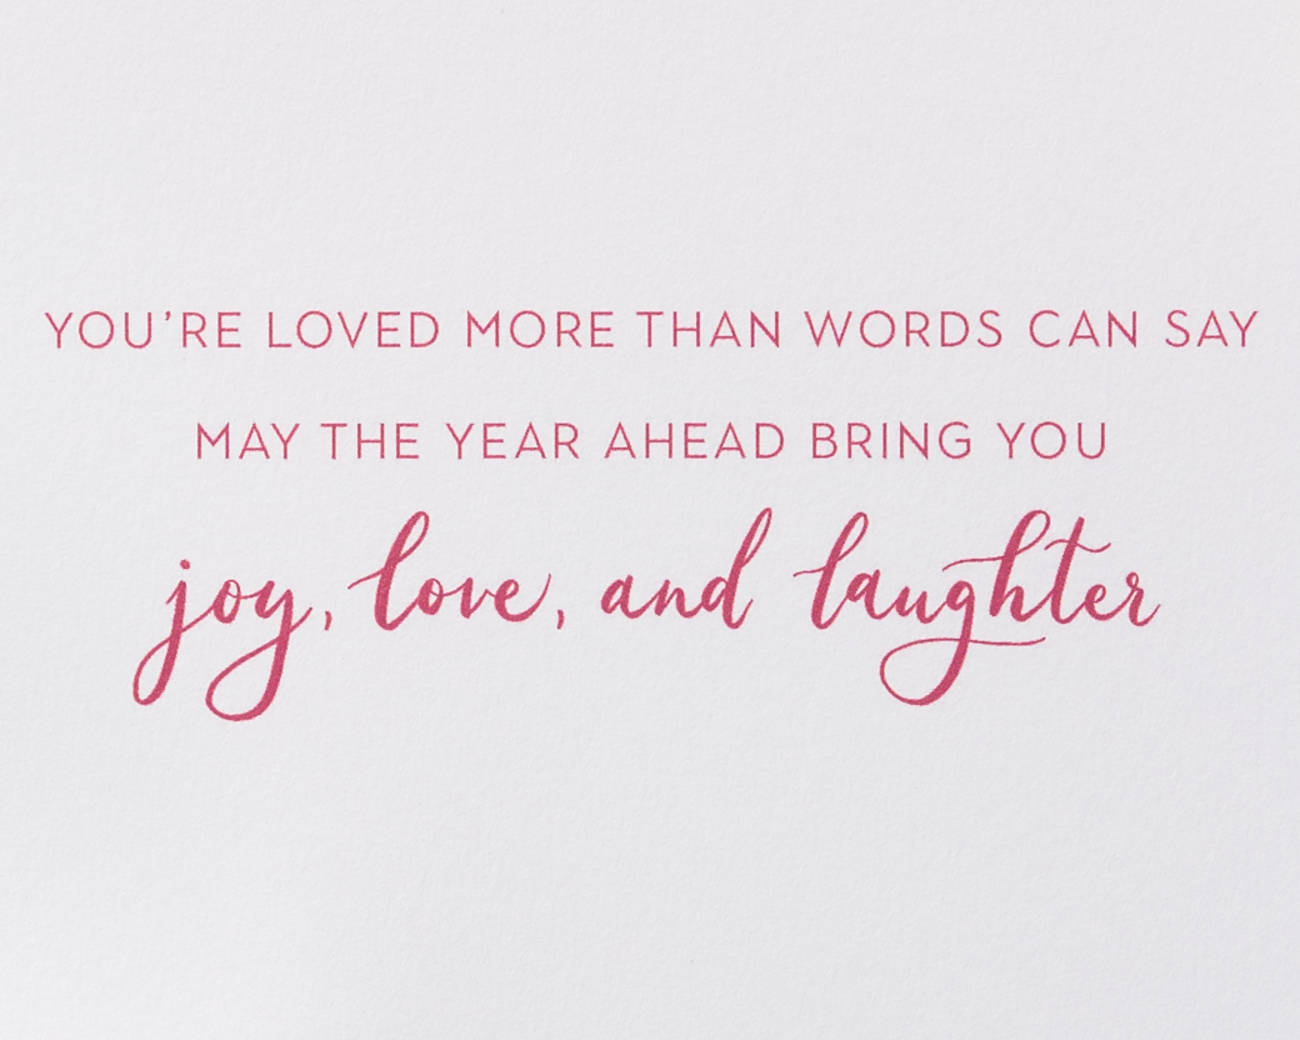 YOU'RE LOVED MORE THAN WORDS CAN SAY
MAY THE YEAR AHEAD BRING YOU
joy, love, and laughter